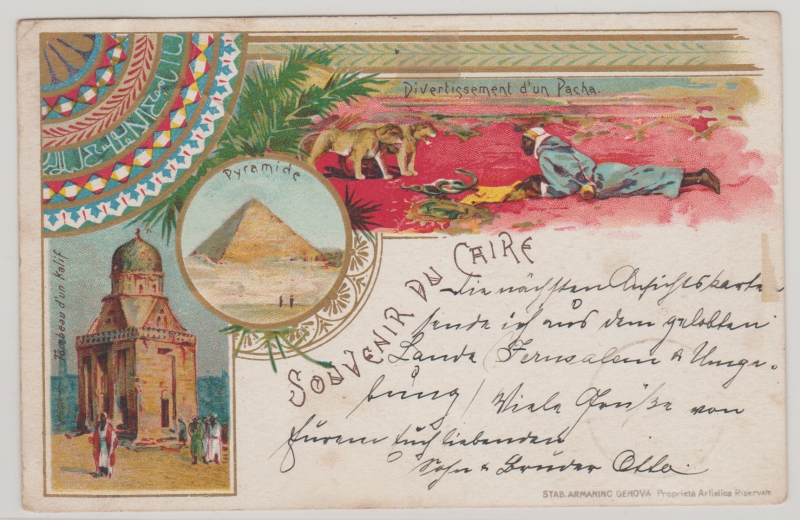 Divertissement d'un Pacha.
Pyramide
Tombeau d'un Kalif
SOUVENIR DU CAIRE
Die nächsten Ansichtskarte
sende ich aus dem gelobten
Lande (Jerusalem & Umge-
bung) Viele Grüße von
Eurem Euch liebenden
Sohn & Bruder Otto.
STAB. ARMANINO GENOVA Proprietà Artistica Riservata